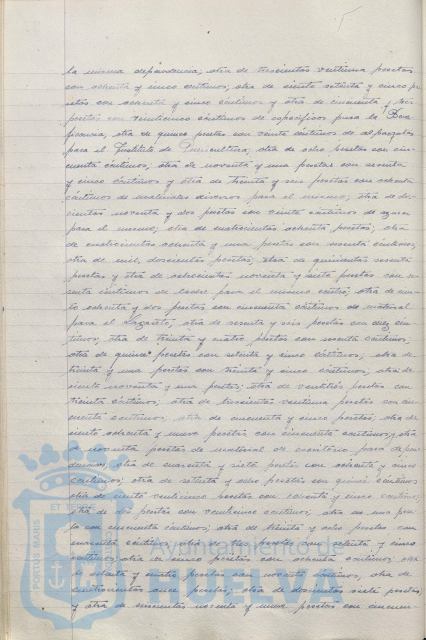 la misma dependencia; otra de trescientas veintiuna pesetas
con ochenta y cinco céntimos; otra de ciento setenta y cinco pe
setas con ochenta y cinco céntimos y otra de cincuenta y seis
pesetas con veinticinco céntimos de específicos para la Bene
ficencia, otra de quince pesetas con veinte céntimos de alpargatas
para el Instituto de Puericultura, otra de ocho pesetas con cin-
cuenta céntimos, otra de noventa y una pesetas con
y cinco céntimos y otra de treinta y seis pesetas con ochenta
céntimos de materiales diversos para el mismo; otra de do-
cientas noventa y dos pesetas con veinte céntimos de azúcar
para el mismo; otra de cuatrocientas ochenta pesetas; otra
de cuatrocientas ochenta y una pesetas con céntimos,
otra de mil doscientas pesetas; otra de quinientas
pesetas y otra de setecientas noventa y siete pesetas con
céntimos de leche para el mismo centro; otra de cien-
to ochenta y dos pesetas con cincuenta céntimos de material
para el Lazareto; otra de sesenta y seis pesetas con diez cén-
timos; otra de treinta y cuatro pesetas con céntimos;
otra de quince pesetas con setenta y cinco céntimos; otra de
treinta y una pesetas con treinta y cinco céntimos; otra de
ciento noventa y una pesetas; otra de veintitrés pesetas con
treinta céntimos; otra de trescientas veintiuna pesetas con cin-
cuenta céntimos; otra de cincuenta y cinco pesetas; otra de
ciento ochenta y nueve pesetas con cincuenta céntimos, otra
de noventa pesetas de material de escritorio para depen
dencias; otra de cuarenta y siete pesetas con ochenta y cinco
céntimos; otra de setenta y ocho pesetas con quince céntimos
otra de ciento veinticinco pesetas con ochenta y cinco céntimos;
otra de dos pesetas con veinticinco céntimos; otra de una pese
ta con cincuenta céntimos; otra de treinta y ocho pesetas con
cincuenta céntimos; otra de pesetas con setenta y cinco
céntimos; otra de cinco pesetas con ochenta céntimos; otra
y cuatro pesetas con noventa céntimos, otra de
cuatrocientas once pesetas; otra de doscientas siete pesetas
y otra de noventa y nueve pesetas con cincuen-
Ayuntamiento de
HUELVA
PORTUS MARIS